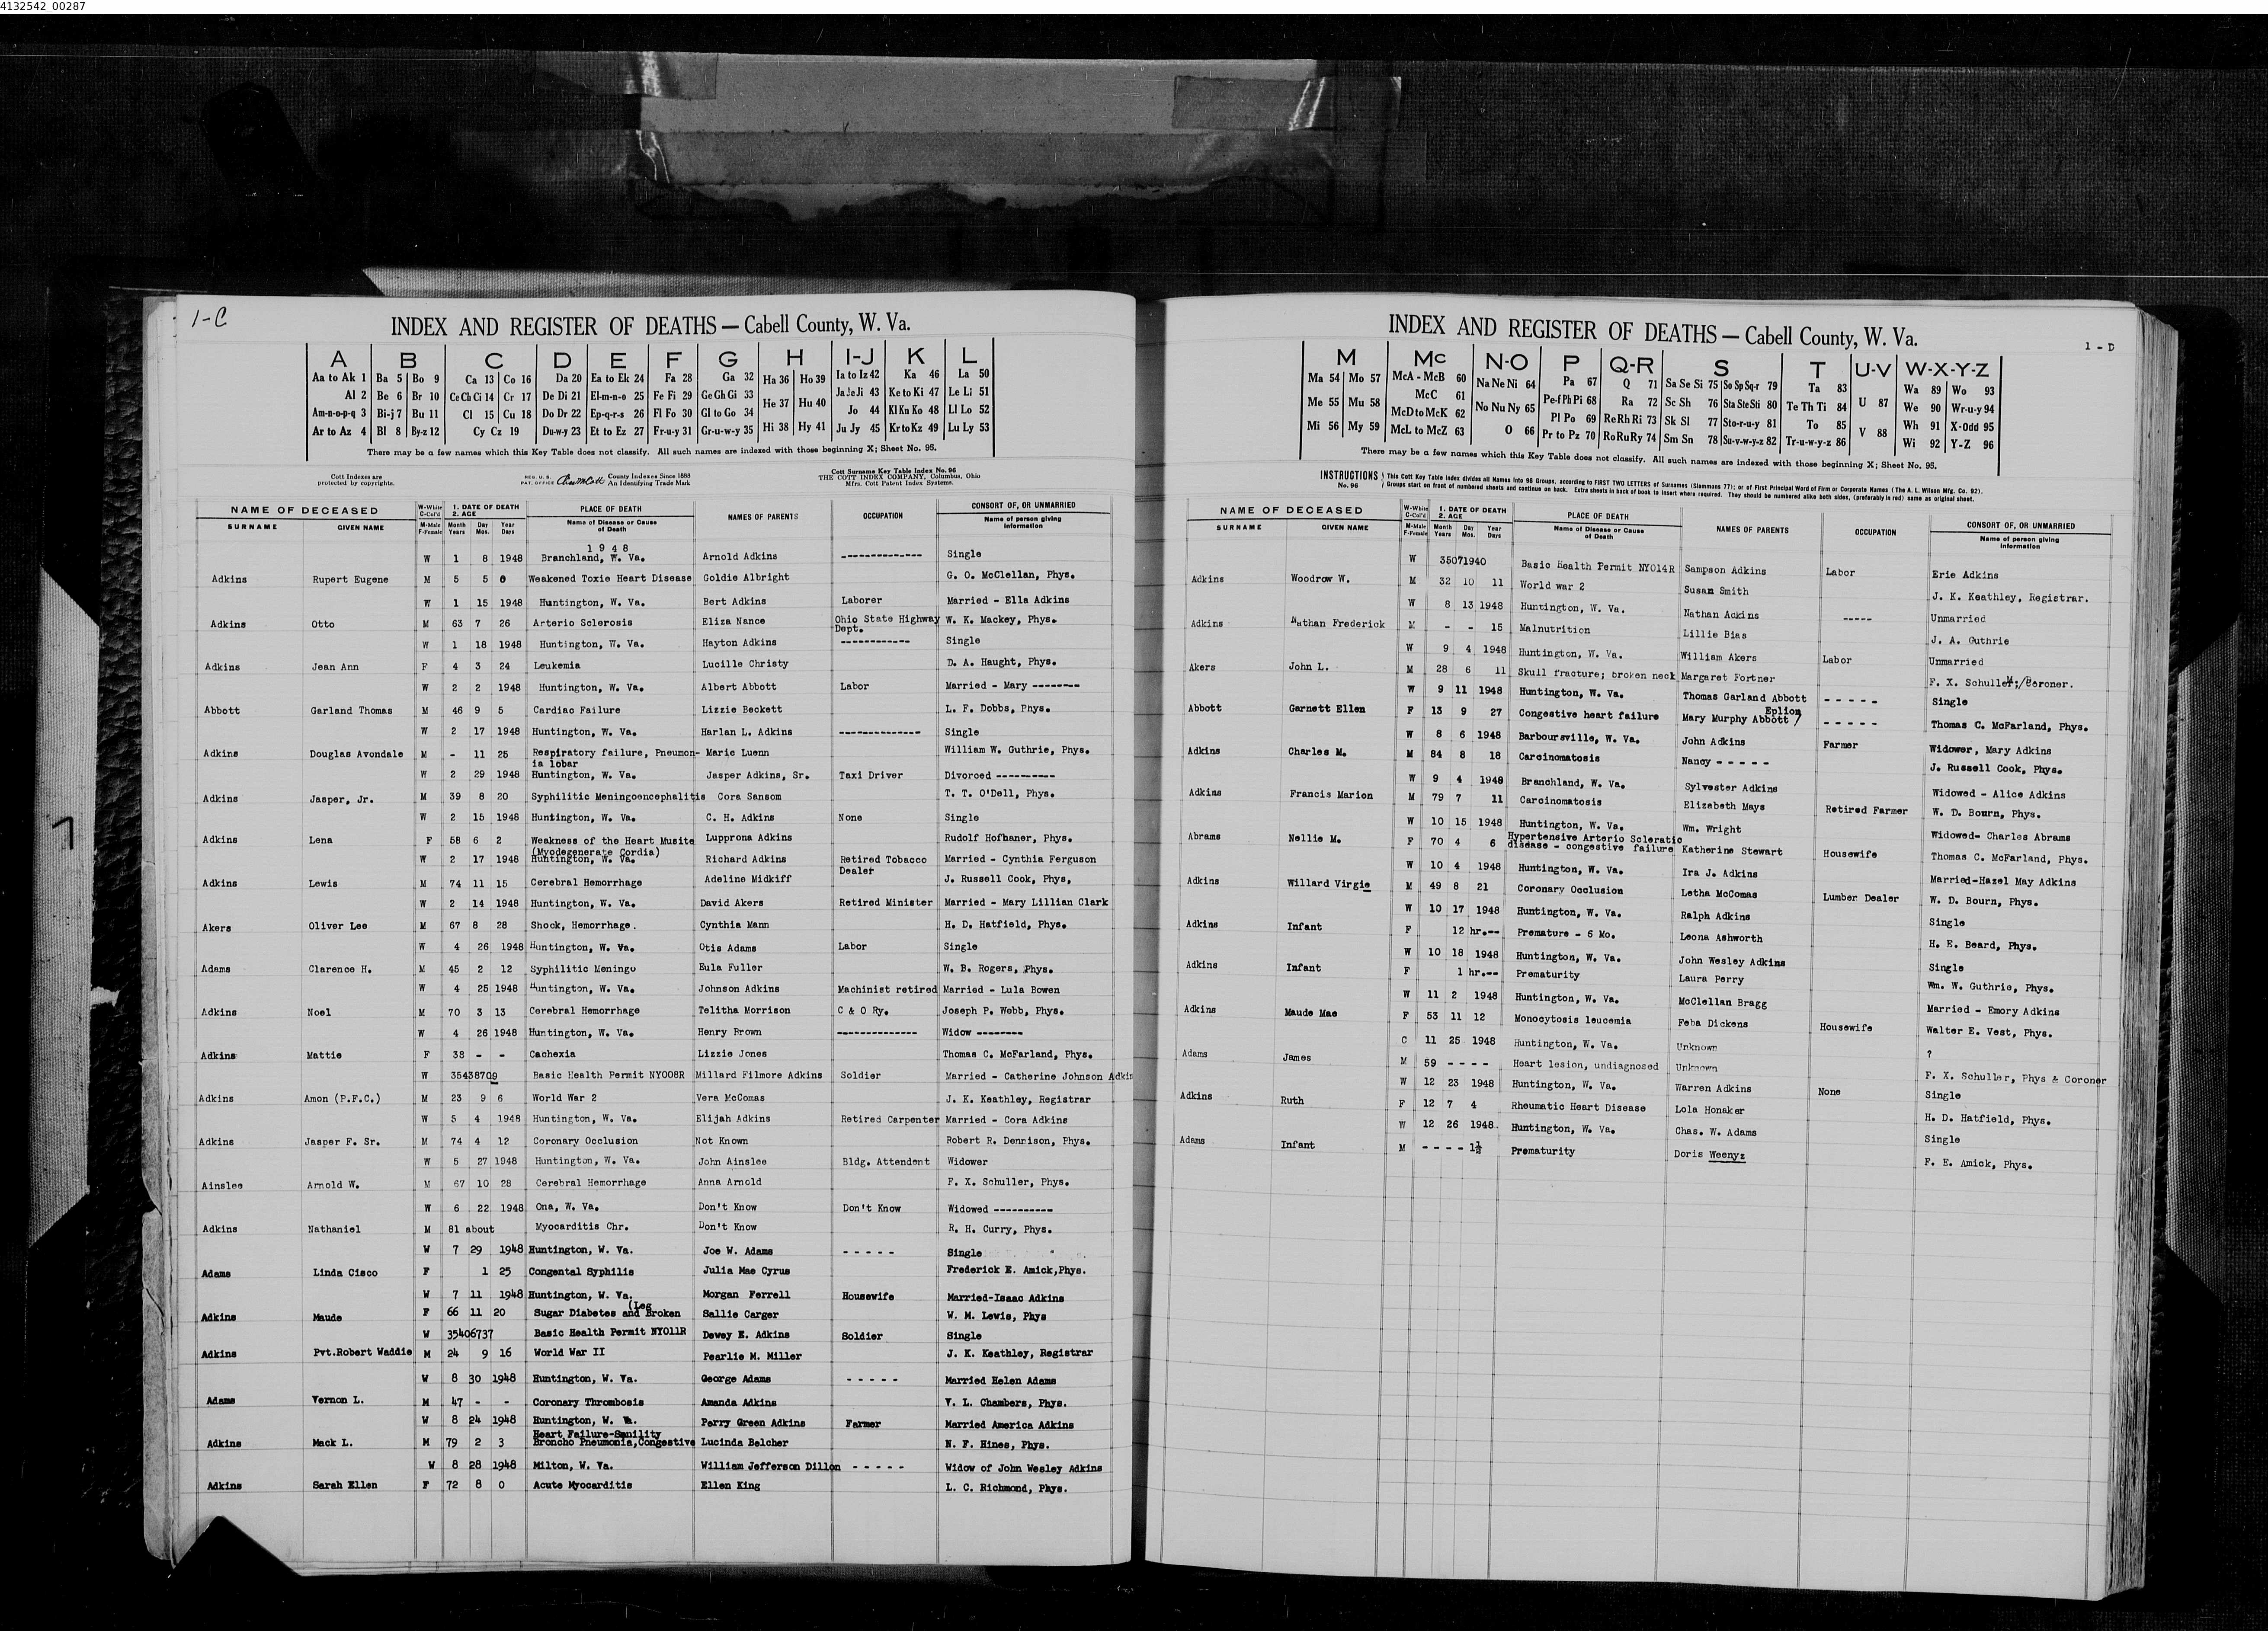 4132542_00287
1-C
INDEX AND REGISTER OF DEATHS — Cabell County, W. Va.
A B C D E F G H I-J K L
Aa to Ak 1 Ba 5 Bo 9 Ca 13 Co 16 Da 20 Ea to Ek 24 Fa 28 Ga 32 Ha 36 Ho 39 Ia to Iz 42 Ka 46 La 50
Al 2 Be 6 Br 10 Ce Ch Ci 14 Cr 17 De Di 21 El-m-n-o 25 Fe Fi 29 Ge Gh Gi 33 He 37 Hu 40 Ja Je Ji 43 Ke to Ki 47 Le Li 51
Am-n-o-p-q 3 Bi-j 7 Bu 11 Cl 15 Cu 18 Do Dr 22 Ep-q-r-s 26 Fl Fo 30 Gl to Go 34 Jo 44 Kl Kn Ko 48 Ll Lo 52
Ar to Az 4 Bl 8 By-z 12 Cy Cz 19 Du-w-y 23 Et to Ez 27 Fr-u-y 31 Gr-u-w-y 35 Hi 38 Hy 41 Ju Jy 45 Kr to Kz 49 Lu Ly 53
There may be a few names which this Key Table does not classify. All such names are indexed with those beginning X; Sheet No. 95.
Cott Indexes are protected by copyrights.
REG. U. S. PAT. OFFICE County Indexes Since 1888 An Identifying Trade Mark
Cott Surname Key Table Index No. 96
THE COTT INDEX COMPANY, Columbus, Ohio
Mrs. Cott Patent Index Systems.
NAME OF DECEASED W-White C-Col'd 1. DATE OF DEATH 2. AGE PLACE OF DEATH NAMES OF PARENTS OCCUPATION CONSORT OF, OR UNMARRIED
SURNAME GIVEN NAME M-Male F-Female Month Years Day Mos. Year Days Name of Disease or Cause of Death Name of person giving information
1 9 4 8
W 1 8 1948 Branchland, W. Va. Arnold Adkins -------------- Single
Adkins Rupert Eugene M 5 5 0 Weakened Toxie Heart Disease Goldie Albright G. O. McClellan, Phys.
W 1 15 1948 Huntington, W. Va. Bert Adkins Laborer Married - Ella Adkins
Adkins Otto M 63 7 26 Arterio Sclerosis Eliza Nance Ohio State Highway Dept. W. K. Mackey, Phys.
W 1 18 1948 Huntington, W. Va. Hayton Adkins ------------ Single
Adkins Jean Ann F 4 3 24 Leukemia Lucille Christy D. A. Haught, Phys.
W 2 2 1948 Huntington, W. Va. Albert Abbott Labor Married - Mary --------
Abbott Garland Thomas M 46 9 5 Cardiac Failure Lizzie Beckett L. F. Dobbs, Phys.
W 2 17 1948 Huntington, W. Va. Harlan L. Adkins -------------- Single
Adkins Douglas Avondale M - 11 25 Respiratory failure, Pneumon-ia lobar Marie Luenn William W. Guthrie, Phys.
W 2 29 1948 Huntington, W. Va. Jasper Adkins, Sr. Taxi Driver Divorced ----------
Adkins Jasper, Jr. M 39 8 20 Syphilitic Meningoencephalitis Cora Sansom T. T. O'Dell, Phys.
W 2 15 1948 Huntington, W. Va. C. H. Adkins None Single
Adkins Lena F 58 6 2 Weakness of the Heart Musite (Myodegenerate Cordia) Lupprona Adkins Rudolf Hofhaner, Phys.
W 2 17 1948 Huntington, W. Va. Richard Adkins Retired Tobacco Dealer Married - Cynthia Ferguson
Adkins Lewis M 74 11 15 Cerebral Hemorrhage Adeline Midkiff J. Russell Cook, Phys,
W 2 14 1948 Huntington, W. Va. David Akers Retired Minister Married - Mary Lillian Clark
Akers Oliver Lee M 67 8 28 Shock, Hemorrhage. Cynthia Mann H. D. Hatfield, Phys.
W 4 26 1948 Huntington, W. Va. Otis Adams Labor Single
Adams Clarence H. M 45 2 12 Syphilitic Meningo Eula Fuller W. B. Rogers, Phys.
W 4 25 1948 Huntington, W. Va. Johnson Adkins Machinist retired Married - Lula Bowen
Adkins Noel M 70 3 13 Cerebral Hemorrhage Telitha Morrison C & O Ry. Joseph P. Webb, Phys.
W 4 26 1948 Huntington, W. Va. Henry Brown -------------- Widow --------
Adkins Mattie F 38 - - Cachexia Lizzie Jones Thomas C. McFarland, Phys.
W 35438709 Basic Health Permit NY008R Millard Filmore Adkins Soldier Married - Catherine Johnson Adkin
Adkins Amon (P.F.C.) M 23 9 6 World War 2 Vera McComas J. K. Keathley, Registrar
W 5 4 1948 Huntington, W. Va. Elijah Adkins Retired Carpenter Married - Cora Adkins
Adkins Jasper F. Sr. M 74 4 12 Coronary Occlusion Not Known Robert R. Dennison, Phys.
W 5 27 1948 Huntington, W. Va. John Ainslee Bldg. Attendent Widower
Ainslee Arnold W. M 67 10 28 Cerebral Hemorrhage Anna Arnold F. X. Schuller, Phys.
W 6 22 1948 Ona, W. Va. Don't Know Don't Know Widowed ----------
Adkins Nathaniel M 81 about Myocarditis Chr. Don't Know R. H. Curry, Phys.
W 7 29 1948 Huntington, W. Va. Joe W. Adams - - - - - Single
Adams Linda Cisco F 1 25 Congental Syphilis Julia Mae Cyrus Frederick E. Amick,Phys.
W 7 11 1948 Huntington, W. Va. Morgan Ferrell Housewife Married-Isaac Adkins
Adkins Maude F 66 11 20 Sugar Diabetes and Broken (Leg Sallie Carger W. M. Lewis, Phys
W 35406737 Basic Health Permit NY011R Dewey E. Adkins Soldier Single
Adkins Pvt.Robert Waddie M 24 9 16 World War II Pearlie M. Miller J. K. Keathley, Registrar
W 8 30 1948 Huntington, W. Va. George Adams - - - - - Married Helen Adams
Adams Vernon L. M 47 - - Coronary Thrombosis Amanda Adkins V. L. Chambers, Phys.
W 8 24 1948 Huntington, W. Va. Perry Green Adkins Farmer Married America Adkins
Adkins Mack L. M 79 2 3 Heart Failure-Senility Broncho Pneumonia,Congestive Lucinda Belcher N. F. Hines, Phys.
W 8 28 1948 Milton, W. Va. William Jefferson Dillon - - - - - Widow of John Wesley Adkins
Adkins Sarah Ellen F 72 8 0 Acute Myocarditis Ellen King L. C. Richmond, Phys.
INDEX AND REGISTER OF DEATHS — Cabell County, W. Va.
1 - D
M Mc N-O P Q-R S T U-V W-X-Y-Z
Ma 54 Mo 57 McA - McB 60 Na Ne Ni 64 Pa 67 Q 71 Sa Se Si 75 So Sp Sq-r 79 Ta 83 U 87 Wa 89 Wo 93
Me 55 Mu 58 McC 61 No Nu Ny 65 Pe-f Ph Pi 68 Ra 72 Sc Sh 76 Sta Ste Sti 80 Te Th Ti 84 We 90 Wr-u-y 94
McD to McK 62 Pl Po 69 Re Rh Ri 73 Sk Sl 77 Sto-r-u-y 81 To 85 Wh 91 X-Odd 95
Mi 56 My 59 McL to McZ 63 O 66 Pr to Pz 70 Ro Ru Ry 74 Sm Sn 78 Su-v-w-y-z 82 Tr-u-w-y-z 86 V 88 Wi 92 Y-Z 96
There may be a few names which this Key Table does not classify. All such names are indexed with those beginning X; Sheet No. 95.
INSTRUCTIONS No. 96 This Cott Key Table Index divides all Names into 96 Groups, according to FIRST TWO LETTERS of Surnames (Slemmons 77); or of First Principal Word of Firm or Corporate Names (The A. L. Wilson Mfg. Co. 92).
Groups start on front of numbered sheets and continue on back. Extra sheets in back of book to insert where required. They should be numbered alike both sides, (preferably in red) same as original sheet.
NAME OF DECEASED W-White C-Col'd 1. DATE OF DEATH 2. AGE PLACE OF DEATH NAMES OF PARENTS OCCUPATION CONSORT OF, OR UNMARRIED
SURNAME GIVEN NAME M-Male F-Female Month Years Day Mos. Year Days Name of Disease or Cause of Death Name of person giving information
W 35071940 Basic Health Permit NY014R Sampson Adkins Labor Erie Adkins
Adkins Woodrow W. M 32 10 11 World war 2 Susan Smith J. K. Keathley, Registrar.
W 8 13 1948 Huntington, W. Va. Nathan Adkins ----- Unmarried
Adkins Nathan Frederick M - - 15 Malnutrition Lillie Bias J. A. Guthrie
W 9 4 1948 Huntington, W. Va. William Akers Labor Unmarried
Akers John L. M 28 6 11 Skull fracture; broken neck Margaret Fortner F. X. Schuller, Coroner.
W 9 11 1948 Huntington, W. Va. Thomas Garland Abbott - - - - - Single
Abbott Garnett Ellen F 13 9 27 Congestive heart failure Mary Murphy Abbott / Eplion - - - - - Thomas C. McFarland, Phys.
W 8 6 1948 Barboursville, W. Va. John Adkins Farmer Widower, Mary Adkins
Adkins Charles M. M 84 8 18 Carcinomatosis Nancy - - - - - J. Russell Cook, Phys.
W 9 4 1948 Branchland, W. Va. Sylvester Adkins Widowed - Alice Adkins
Adkins Francis Marion M 79 7 11 Carcinomatosis Elizabeth Mays Retired Farmer W. D. Bourn, Phys.
W 10 15 1948 Huntington, W. Va. Wm. Wright Widowed- Charles Abrams
Abrams Nellie M. F 70 4 6 Hypertensive Arterio Scleratic disease - congestive failure Katherine Stewart Housewife Thomas C. McFarland, Phys.
W 10 4 1948 Huntington, W. Va. Ira J. Adkins Married-Hazel May Adkins
Adkins Willard Virgie M 49 8 21 Coronary Occlusion Letha McComas Lumber Dealer W. D. Bourn, Phys.
W 10 17 1948 Huntington, W. Va. Ralph Adkins Single
Adkins Infant F 12 hr.-- Premature - 6 Mo. Leona Ashworth H. E. Beard, Phys.
W 10 18 1948 Huntington, W. Va. John Wesley Adkins Single
Adkins Infant F 1 hr.-- Prematurity Laura Perry Wm. W. Guthrie, Phys.
W 11 2 1948 Huntington, W. Va. McClellan Bragg Married - Emory Adkins
Adkins Maude Mae F 53 11 12 Monocytosis leucemia Feba Dickens Housewife Walter E. Vest, Phys.
C 11 25 1948 Huntington, W. Va. Unknown ?
Adams James M 59 - - - - Heart lesion, undiagnosed Unknown F. X. Schuller, Phys & Coroner
W 12 23 1948 Huntington, W. Va. Warren Adkins None Single
Adkins Ruth F 12 7 4 Rheumatic Heart Disease Lola Honaker H. D. Hatfield, Phys.
W 12 26 1948. Huntington, W. Va. Chas. W. Adams Single
Adams Infant M - - - - 1½ Prematurity Doris Weenyz F. E. Amick, Phys.